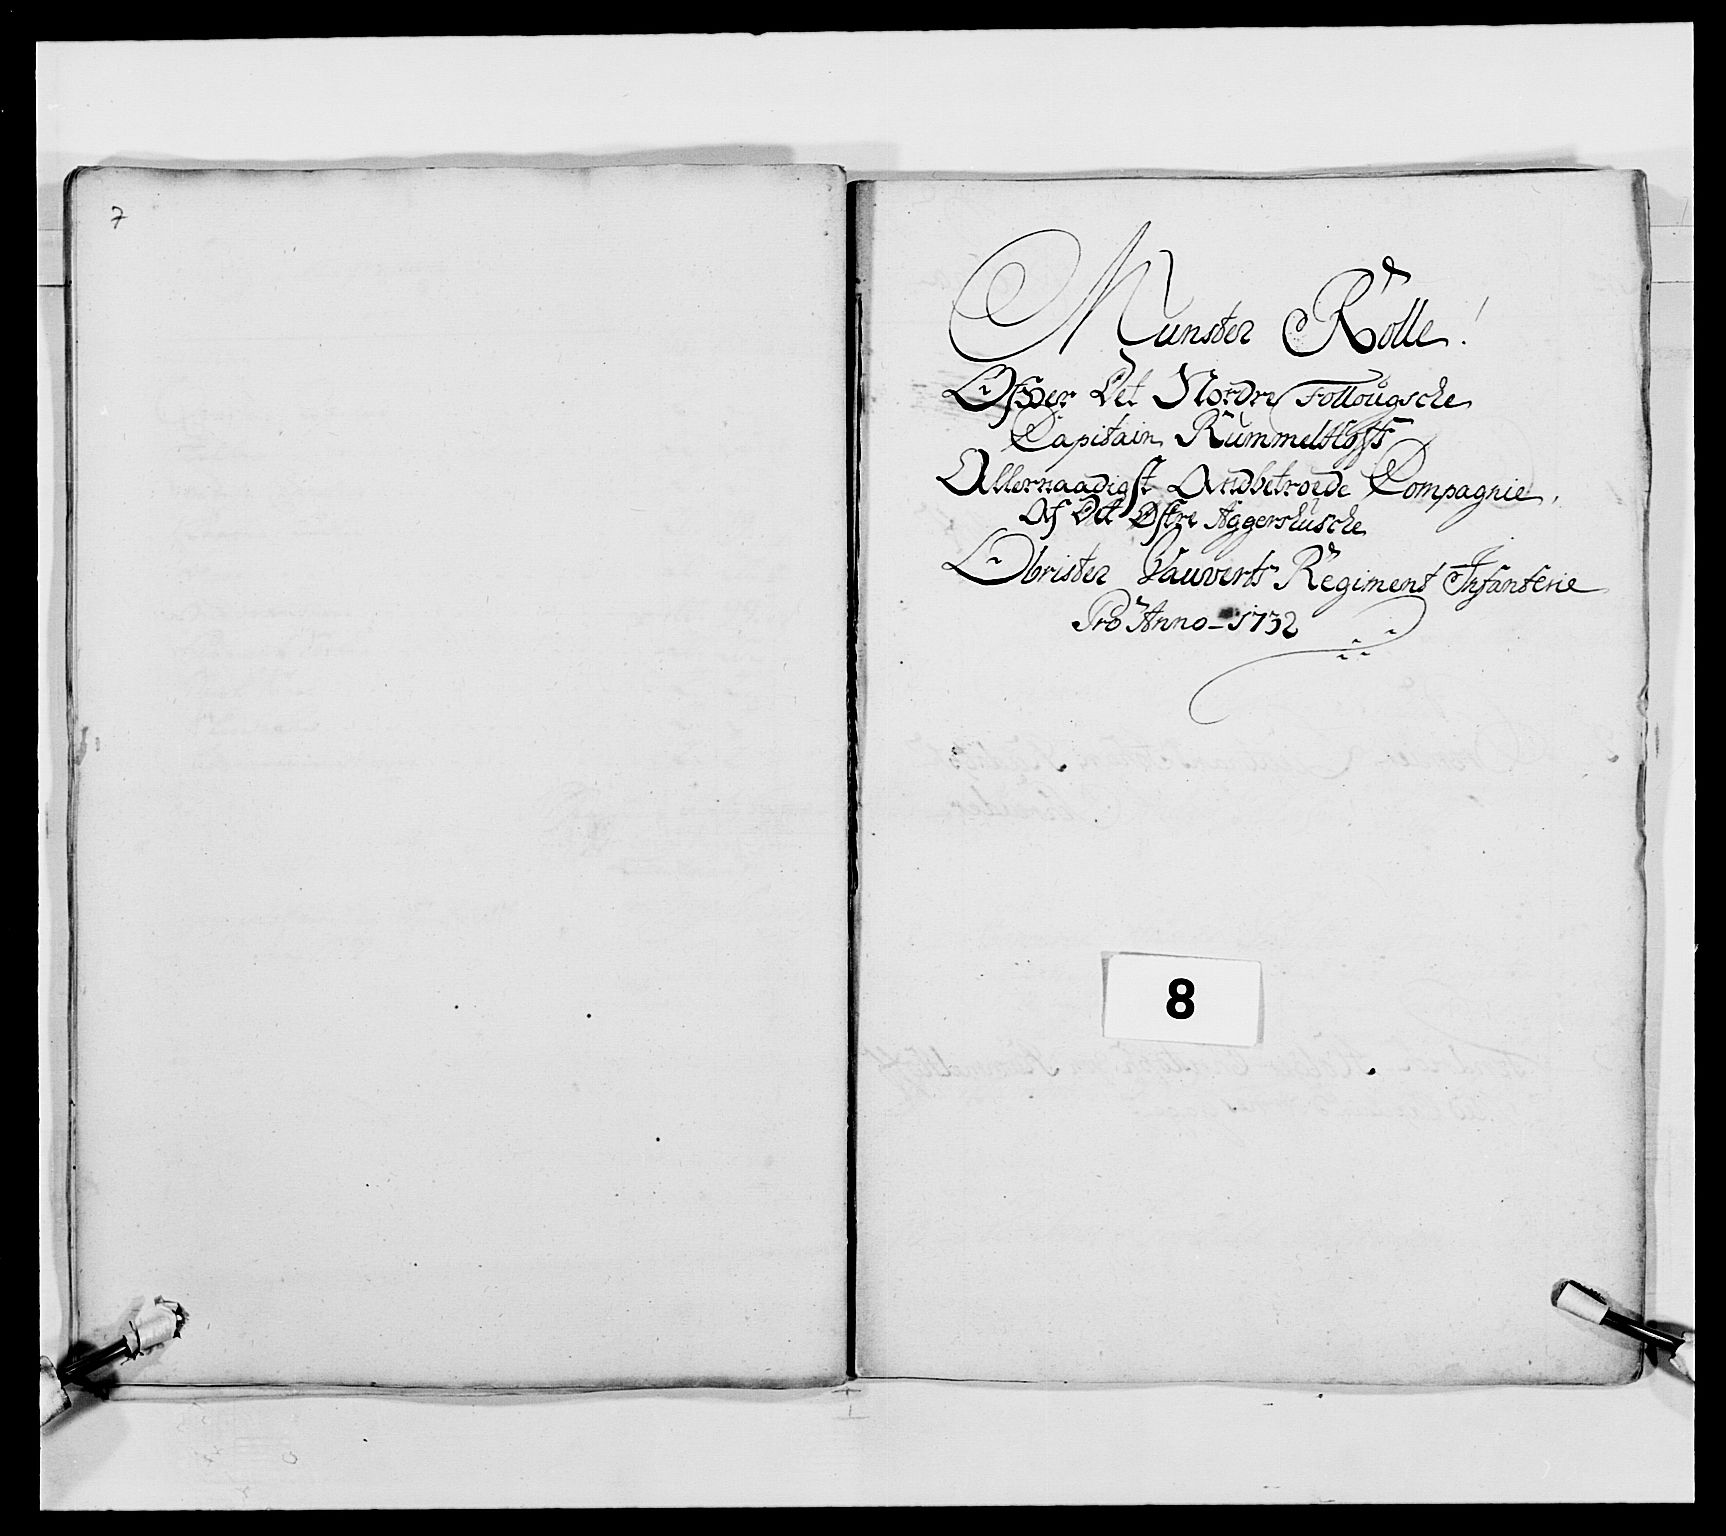 7
Munster Rolle!
Offver Det Nordre Follougsche
Capitain Rummelhoffs
Allernaadigst Andbetroede Compagnie,
Af Det Østre Aggershusche
Obrister Vauverts Regiment Infanterie
Pro Anno - 1732
8